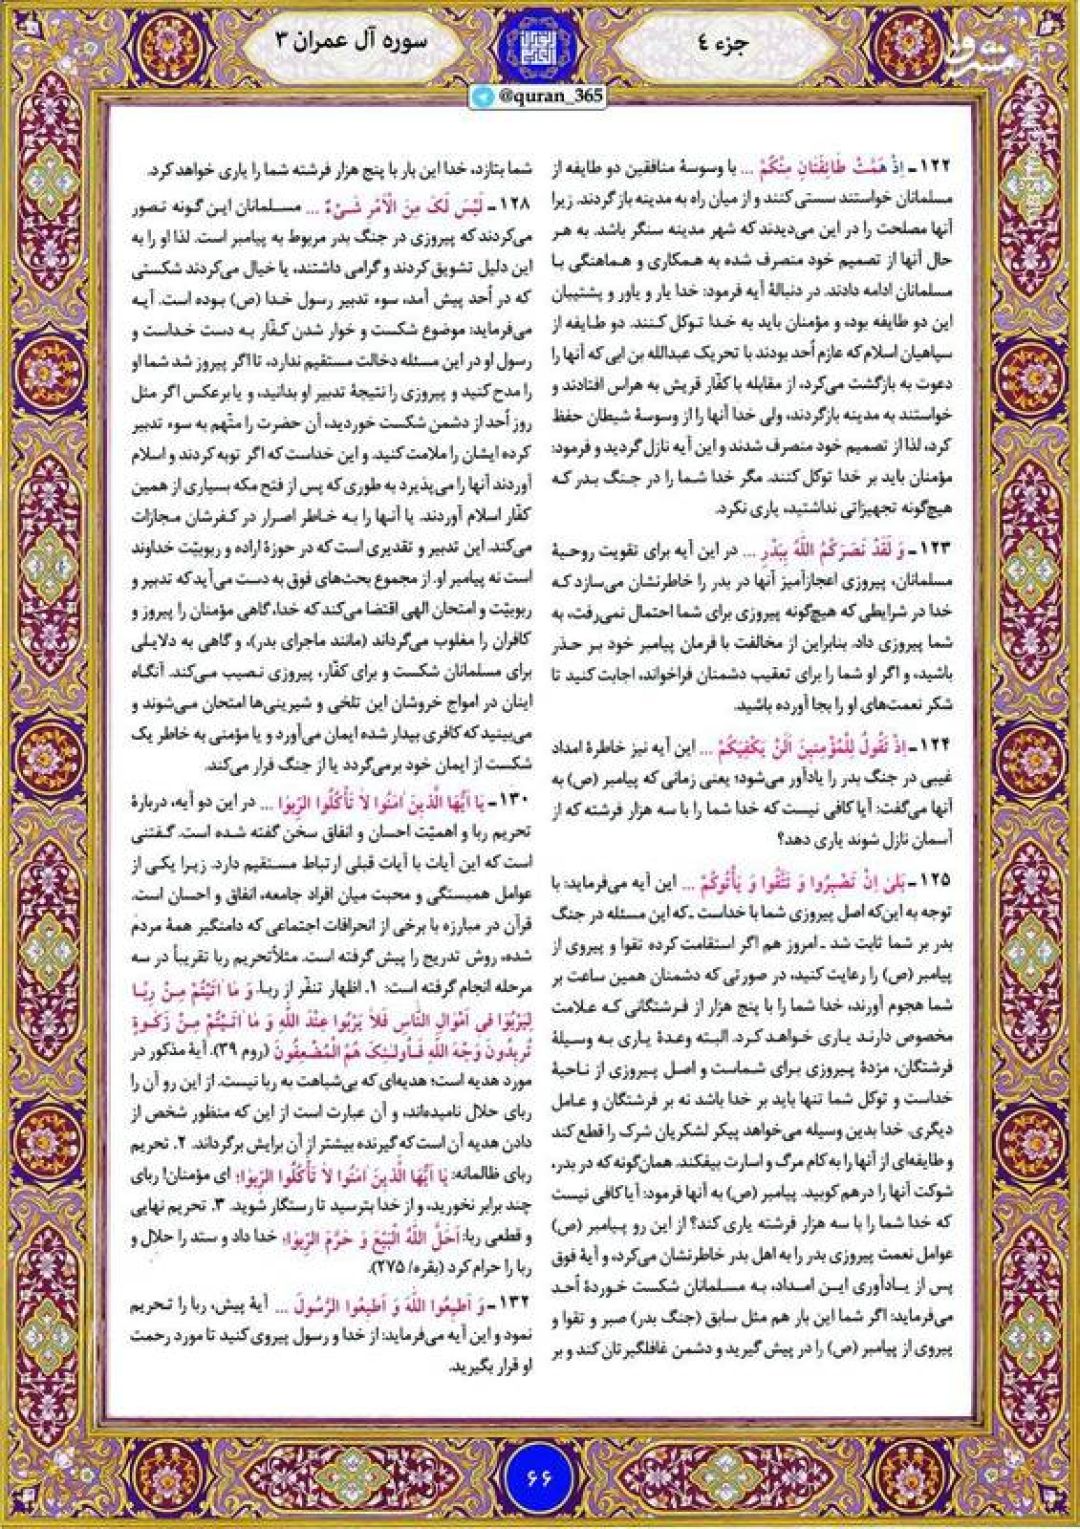 جزء ۴
سوره آل عمران ۳
@quran_365
۱۲۲ـ اِذْ هَمَّتْ طَائِفَتَانِ مِنْكُمْ ... با وسوسهٔ منافقین دو طایفه از
مسلمانان خواستند سستی کنند و از میان راه به مدینه بازگردند. زیرا
آنها مصلحت را در این می‌دیدند که شهر مدینه سنگر باشد. به هر
حال آنها از تصمیم خود منصرف شده به همکاری و هماهنگی با
مسلمانان ادامه دادند. در دنبالهٔ آیه فرمود: خدا یار و یاور و پشتیبان
این دو طایفه بود، و مؤمنان باید به خدا توکل کنند. دو طایفه از
سپاهیان اسلام که عازم اُحد بودند با تحریک عبدالله بن ابی که آنها را
دعوت به بازگشت می‌کرد، از مقابله با کفّار قریش به هراس افتادند و
خواستند به مدینه بازگردند، ولی خدا آنها را از وسوسهٔ شیطان حفظ
کرد، لذا از تصمیم خود منصرف شدند و این آیه نازل گردید و فرمود:
مؤمنان باید بر خدا توکل کنند. مگر خدا شما را در جنگ بدر که
هیچ‌گونه تجهیزاتی نداشتید، یاری نکرد.
۱۲۳ـ وَ لَقَدْ نَصَرَكُمُ اللّٰهُ بِبَدْرٍ ... در این آیه برای تقویت روحیهٔ
مسلمانان، پیروزی اعجازآمیز آنها در بدر را خاطرنشان می‌سازد که
خدا در شرایطی که هیچ‌گونه پیروزی برای شما احتمال نمی‌رفت، به
شما پیروزی داد. بنابراین از مخالفت با فرمان پیامبر خود بر حذر
باشید، و اگر او شما را برای تعقیب دشمنان فراخواند، اجابت کنید تا
شکر نعمت‌های او را بجا آورده باشید.
۱۲۴ـ اِذْ تَقُولُ لِلْمُؤْمِنِينَ اَلَنْ يَكْفِيَكُمْ ... این آیه نیز خاطرهٔ امداد
غیبی در جنگ بدر را یادآور می‌شود؛ یعنی زمانی که پیامبر (ص) به
آنها می‌گفت: آیا کافی نیست که خدا شما را با سه هزار فرشته که از
آسمان نازل شوند یاری دهد؟
۱۲۵ـ بَلىٰ اِنْ تَصْبِرُوا وَ تَتَّقُوا وَ يَأْتُوكُمْ ... این آیه می‌فرماید: با
توجه به این‌که اصل پیروزی شما با خداست ـ که این مسئله در جنگ
بدر بر شما ثابت شد ـ امروز هم اگر استقامت کرده تقوا و پیروی از
پیامبر (ص) را رعایت کنید، در صورتی که دشمنان همین ساعت بر
شما هجوم آورند، خدا شما را با پنج هزار از فرشتگانی که علامت
مخصوص دارند یاری خواهد کرد. البته وعدهٔ یاری به وسیلهٔ
فرشتگان، مژدهٔ پیروزی برای شماست و اصل پیروزی از ناحیهٔ
خداست و توکل شما تنها باید بر خدا باشد نه بر فرشتگان و عامل
دیگری. خدا بدین وسیله می‌خواهد پیکر لشکریان شرک را قطع کند
و طایفه‌ای از آنها را به کام مرگ و اسارت بیفکند. همان‌گونه که در بدر،
شوکت آنها را درهم کوبید. پیامبر (ص) به آنها فرمود: آیا کافی نیست
که خدا شما را با سه هزار فرشته یاری کند؟ از این رو پیامبر (ص)
عوامل نعمت پیروزی بدر را به اهل بدر خاطرنشان می‌کرد، و آیهٔ فوق
پس از یادآوری این امداد، به مسلمانان شکست خوردهٔ اُحد
می‌فرماید: اگر شما این بار هم مثل سابق (جنگ بدر) صبر و تقوا و
پیروی از پیامبر (ص) را در پیش گیرید و دشمن غافلگیرتان کند و بر
شما بتازد، خدا این بار با پنج هزار فرشته شما را یاری خواهد کرد.
۱۲۸ـ لَيْسَ لَكَ مِنَ الْاَمْرِ شَيْءٌ ... مسلمانان این گونه تصور
می‌کردند که پیروزی در جنگ بدر مربوط به پیامبر است. لذا او را به
این دلیل تشویق کردند و گرامی داشتند، یا خیال می‌کردند شکستی
که در اُحد پیش آمد، سوء تدبیر رسول خدا (ص) بوده است. آیه
می‌فرماید: موضوع شکست و خوار شدن کفّار به دست خداست و
رسول او در این مسئله دخالت مستقیم ندارد، تا اگر پیروز شد شما او
را مدح کنید و پیروزی را نتیجهٔ تدبیر او بدانید، و یا برعکس اگر مثل
روز اُحد از دشمن شکست خوردید، آن حضرت را متّهم به سوء تدبیر
کرده ایشان را ملامت کنید. و این خداست که اگر توبه کردند و اسلام
آوردند آنها را می‌پذیرد به طوری که پس از فتح مکه بسیاری از همین
کفّار اسلام آوردند. یا آنها را به خاطر اصرار در کفرشان مجازات
می‌کند. این تدبیر و تقدیری است که در حوزهٔ اراده و ربوبیّت خداوند
است نه پیامبر او. از مجموع بحث‌های فوق به دست می‌آید که تدبیر و
ربوبیّت و امتحان الهی اقتضا می‌کند که خدا، گاهی مؤمنان را پیروز و
کافران را مغلوب می‌گرداند (مانند ماجرای بدر)، و گاهی به دلایلی
برای مسلمانان شکست و برای کفّار، پیروزی نصیب می‌کند. آنگاه
اینان در امواج خروشان این تلخی و شیرینی‌ها امتحان می‌شوند و
می‌بینید که کافری بیدار شده ایمان می‌آورد و یا مؤمنی به خاطر یک
شکست از ایمان خود برمی‌گردد یا از جنگ فرار می‌کند.
۱۳۰ـ يَا اَيُّهَا الَّذِينَ اٰمَنُوا لاَ تَأْكُلُوا الرِّبٰوا ... در این دو آیه، دربارهٔ
تحریم ربا و اهمیّت احسان و انفاق سخن گفته شده است. گفتنی
است که این آیات با آیات قبلی ارتباط مستقیم دارد. زیرا یکی از
عوامل همبستگی و محبت میان افراد جامعه، انفاق و احسان است.
قرآن در مبارزه با برخی از انحرافات اجتماعی که دامنگیر همهٔ مردم
شده، روش تدریج را پیش گرفته است. مثلاً تحریم ربا تقریباً در سه
مرحله انجام گرفته است: ۱. اظهار تنفّر از ربا. وَ مَا اٰتَيْتُمْ مِنْ رِبًا
لِيَرْبُوَا فِي اَمْوَالِ النَّاسِ فَلاَ يَرْبُوا عِنْدَ اللّٰهِ وَ مَا اٰتَيْتُمْ مِنْ زَكٰوةٍ
تُرِيدُونَ وَجْهَ اللّٰهِ فَاُولٰئِكَ هُمُ الْمُضْعِفُونَ (روم ۳۹). آیهٔ مذکور در
مورد هدیه است؛ هدیه‌ای که بی‌شباهت به ربا نیست. از این رو آن را
ربای حلال نامیده‌اند، و آن عبارت است از این که منظور شخص از
دادن هدیه آن است که گیرنده بیشتر از آن برایش برگرداند. ۲. تحریم
ربای ظالمانه: يَا اَيُّهَا الَّذِينَ اٰمَنُوا لاَ تَأْكُلُوا الرِّبٰوا؛ ای مؤمنان! ربای
چند برابر نخورید، و از خدا بترسید تا رستگار شوید. ۳. تحریم نهایی
و قطعی ربا: اَحَلَّ اللّٰهُ الْبَيْعَ وَ حَرَّمَ الرِّبٰوا؛ خدا داد و ستد را حلال و
ربا را حرام کرد (بقره/ ۲۷۵).
۱۳۲ـ وَ اَطِيعُوا اللّٰهَ وَ اَطِيعُوا الرَّسُولَ ... آیهٔ پیش، ربا را تحریم
نمود و این آیه می‌فرماید: از خدا و رسول پیروی کنید تا مورد رحمت
او قرار بگیرید.
۶۶